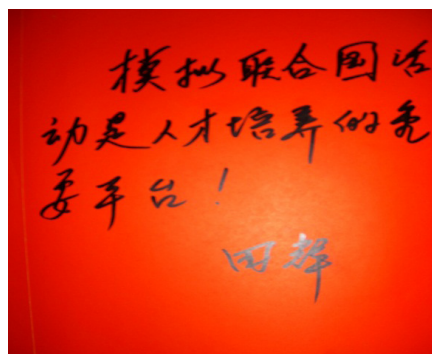 模拟联合国活
动是人才培养的重
要平台！
田辉